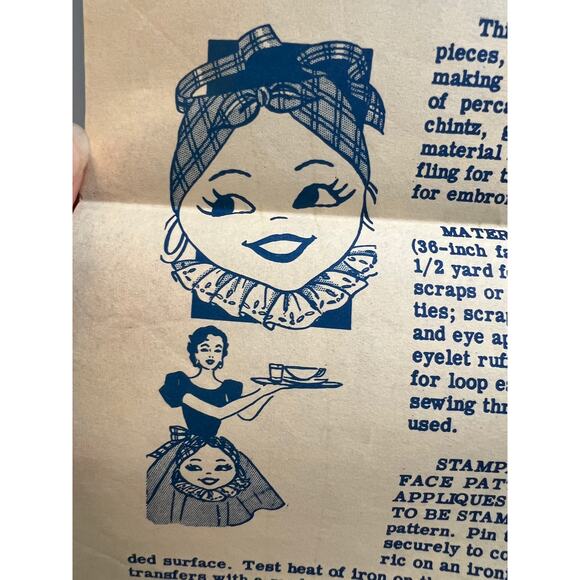 This
pieces,
making
of perca
chintz, g
material
fling for t
for embro
MATER
(36-inch fa
1/2 yard f
scraps or
ties; scrap
and eye ap
eyelet ruff
for loop ea
sewing thr
used.
STAMP
FACE PAT
APPLIQUES
TO BE STAM
pattern. Pin
securely to co
ric on an iron
ded surface. Test heat of iron on
transfers with a